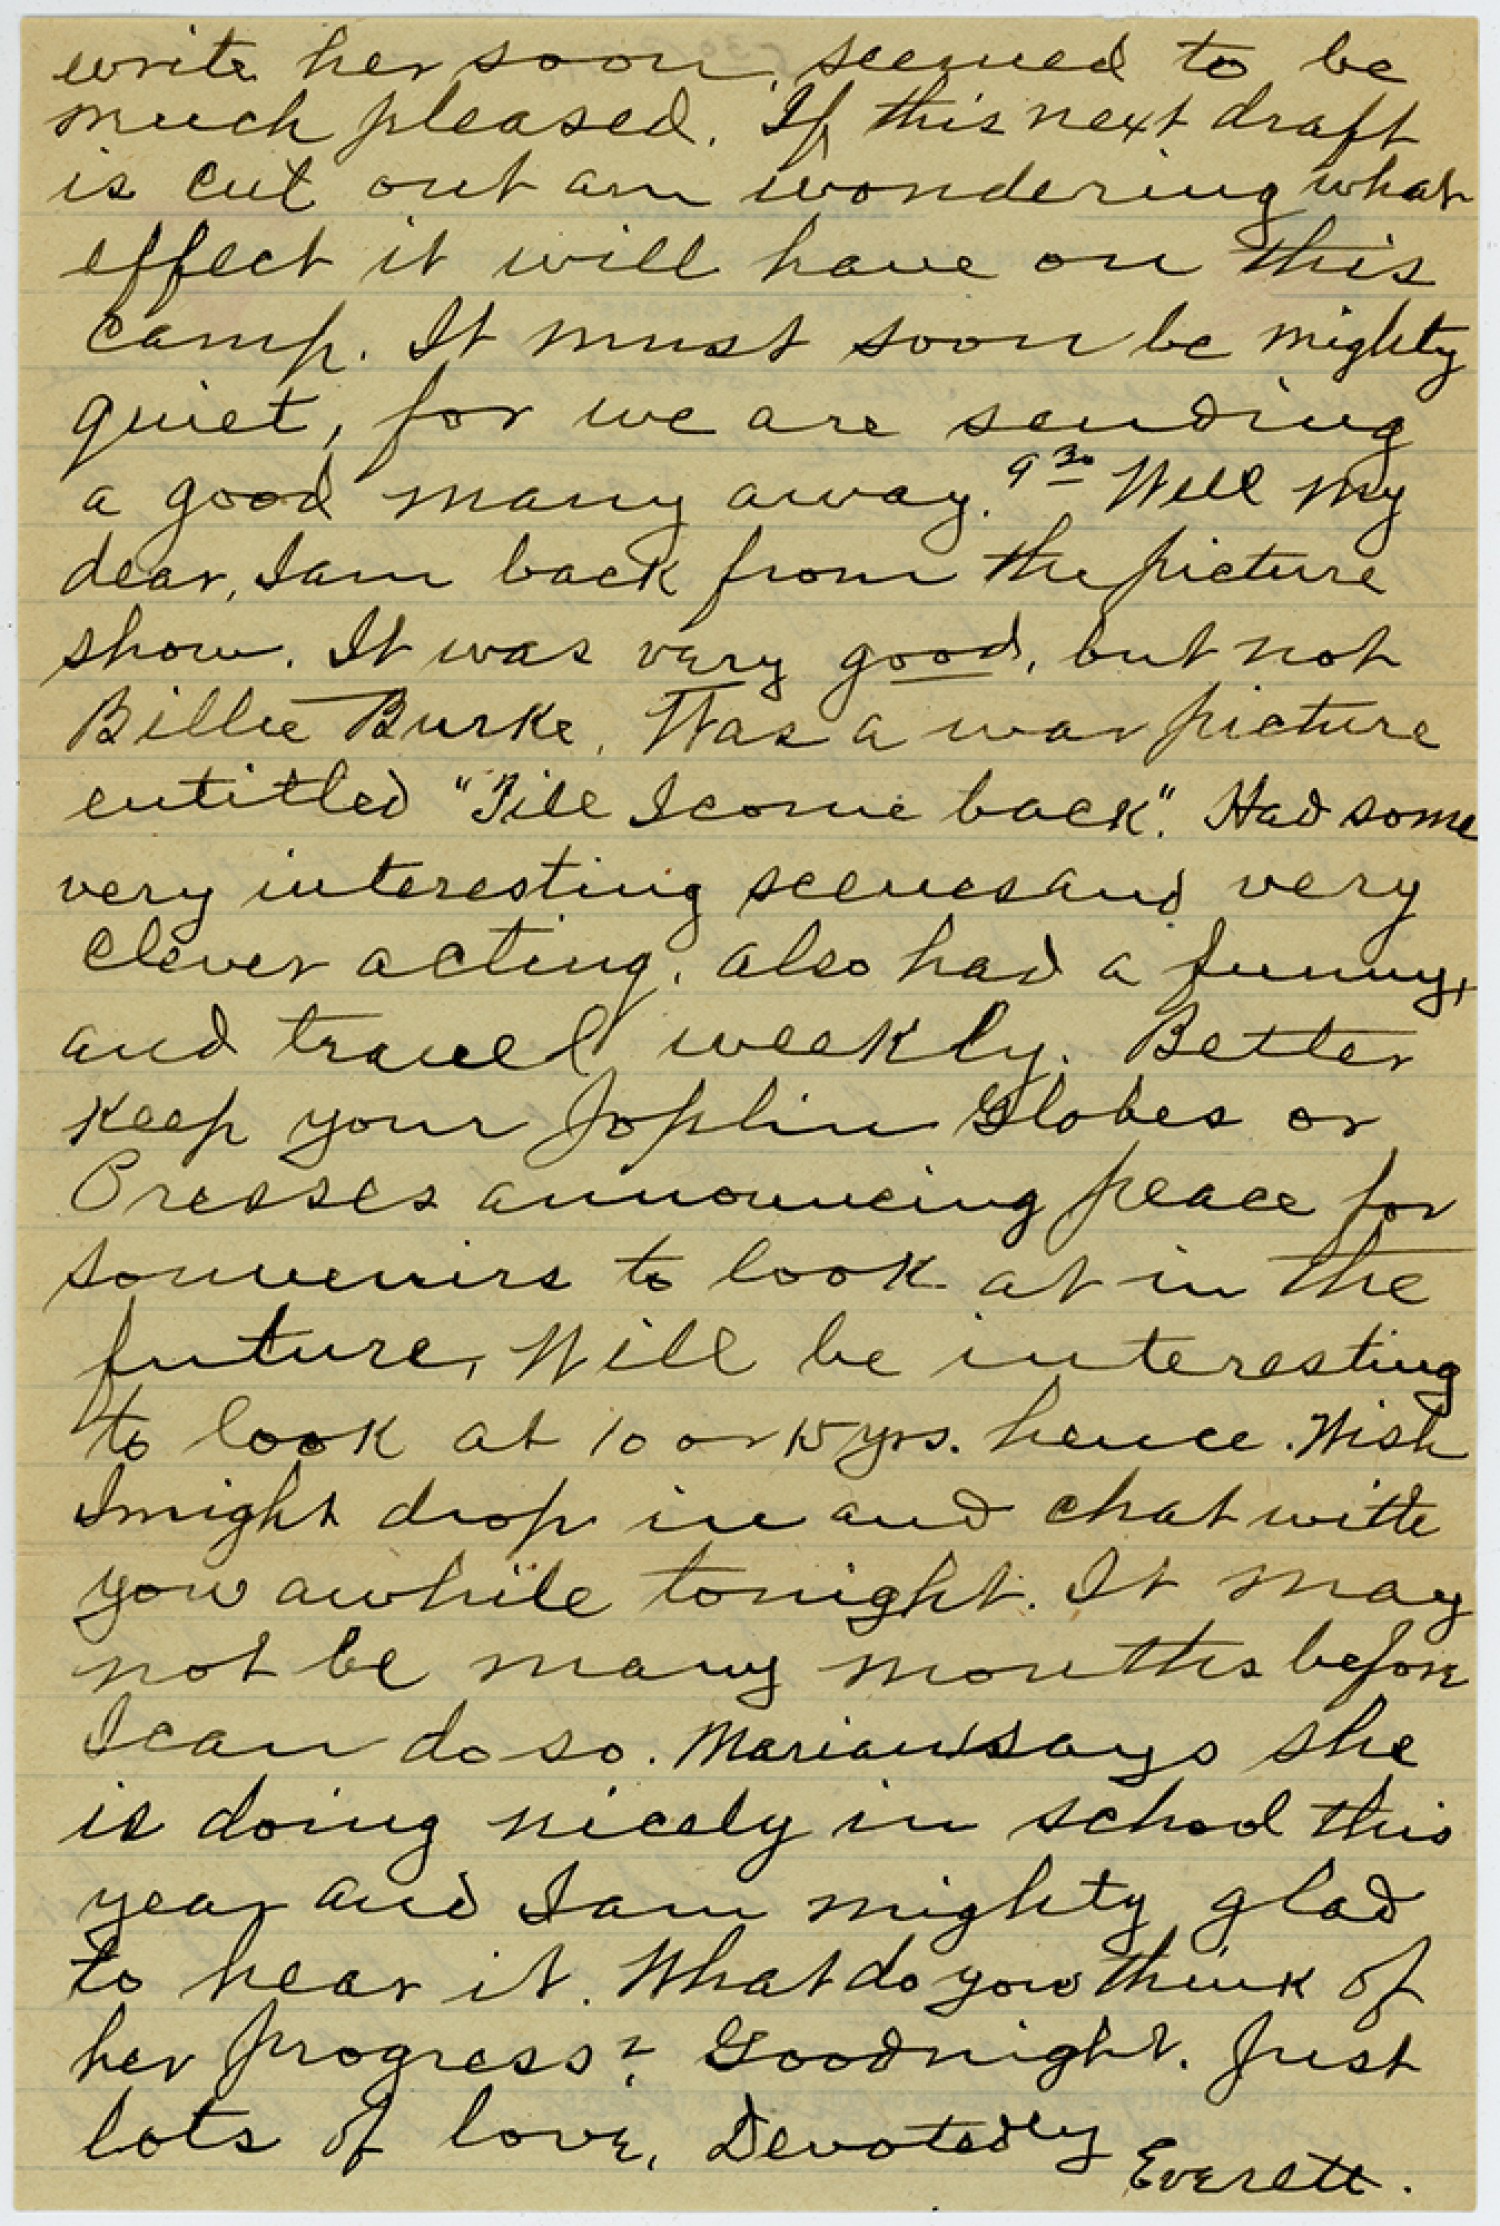 write her soon, seemed to be
much pleased. If this next draft
is cut out am wondering what
effect it will have on this
camp. It must soon be mighty
quiet, for we are sending
a good many away. 9 30 Well my
dear, I am back from the picture
show. It was very good, but not
Billie Burke. Was a war picture
entitled "Till I come back". Had some
very interesting scenes and very
clever acting. also had a funny,
and travel weekly. Better
keep your Joplin Globes or
Presses announcing peace for
souvenirs to look at in the
future, Will be interesting
to look at 10 or 15 yrs. hence. Wish
I might drop in and chat with
you awhile tonight. It may
not be many months before
I can do so. Marian says she
is doing nicely in school this
year and I am mighty glad
to hear it. What do you think of
her progress? Goodnight. Just
lots of love, Devotedly
Everett.